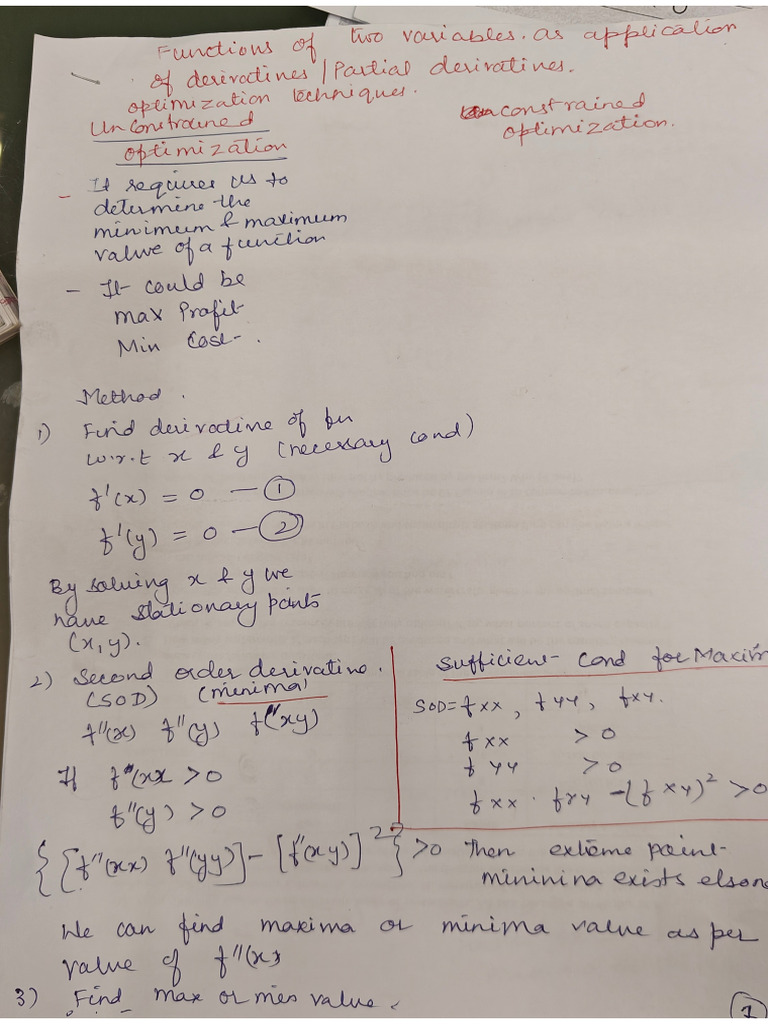 Functions of two variables. as application
of derivatives / Partial derivatives.
optimization techniques.
Unconstrained
optimization
constrained
optimization.
- It requires us to
determine the
minimum & maximum
value of a function
- It could be
max Profit
Min Cost.
Method.
1) Find derivative of fn
w.r.t x & y (necessary cond)
f'(x) = 0 — ①
f'(y) = 0 — ②
By solving x & y we
have stationary points
(x, y).
2) Second order derivative.
(SOD) (minima)
f''(x) f''(y) f''(xy)
If f''(xx > 0
f''(y) > 0
{[f''(xx) f''(yy)] - [f''(xy)]²} > 0 Then extreme point
mininina exists elson
Sufficient Cond for Maxim
SOD = fxx, fyy, fxy.
fxx > 0
fyy > 0
fxx · fyy - (fxy)² > 0
We can find maxima or minima value as per
value of f''(x)
3) Find max or mes value.
1